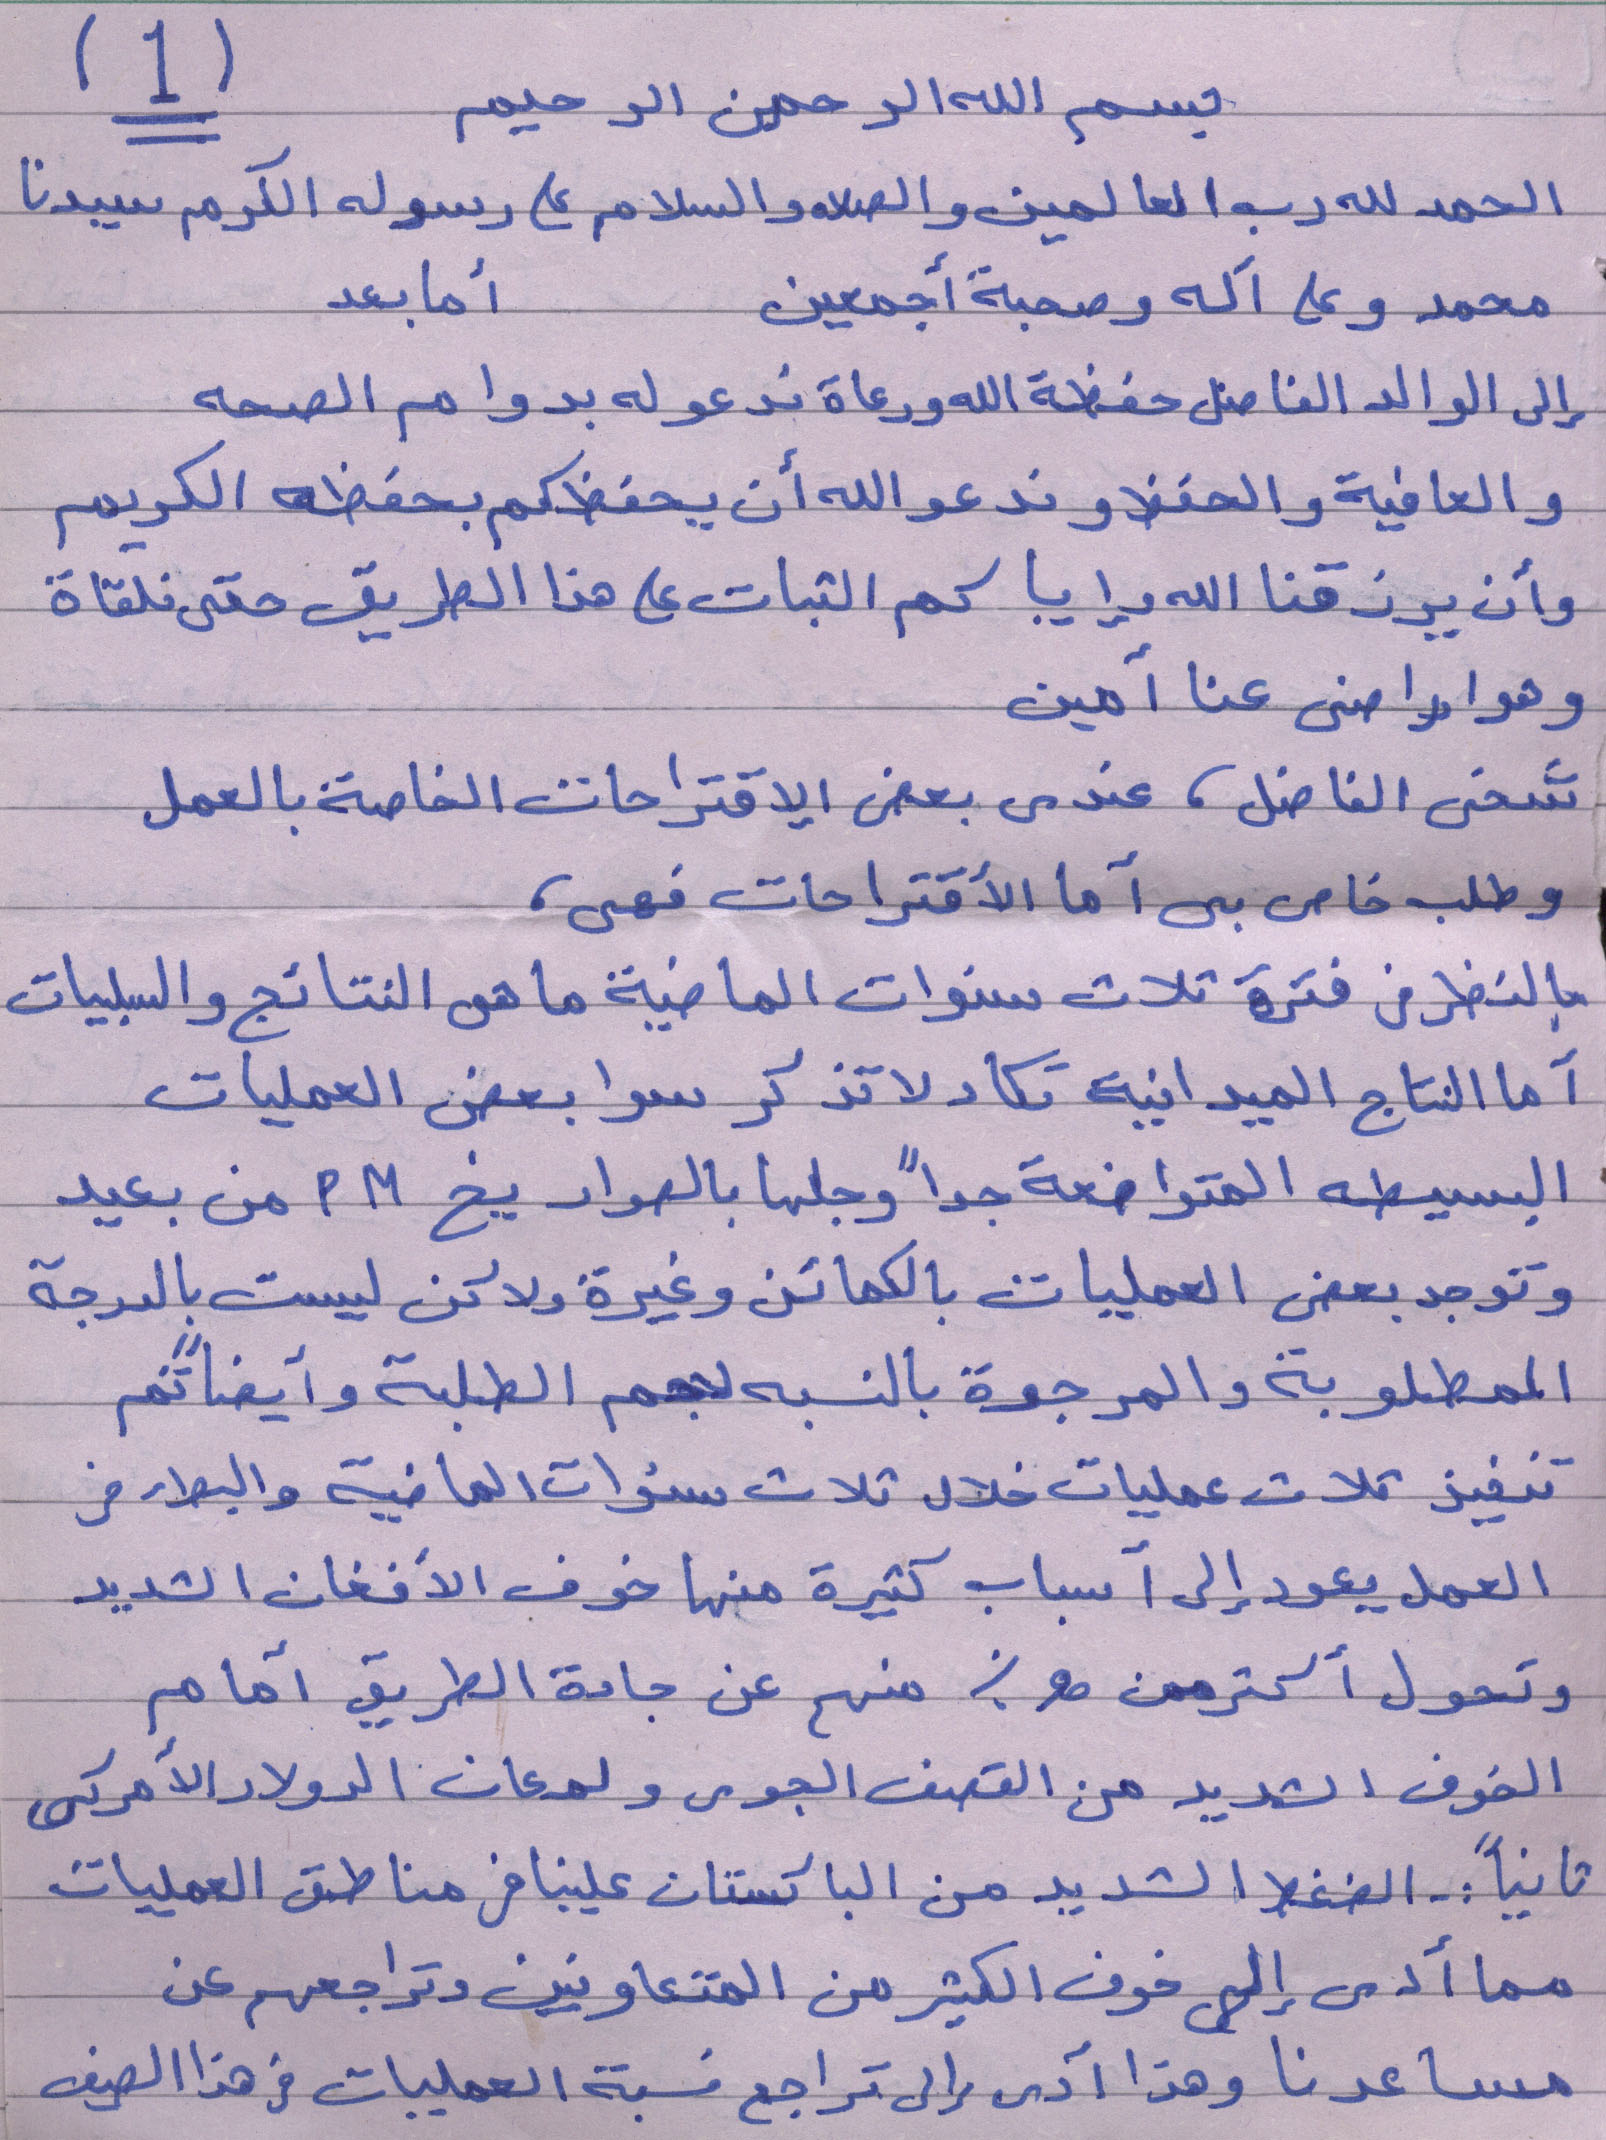 (1)
بسم الله الرحمن الرحيم
الحمد لله رب العالمين والصلاه والسلام على رسوله الكرم سيدنا
محمد وعلى آله وصحبة أجمعين أما بعد
إلى الوالد الفاضل حفظة الله ورعاة ندعو له بدوام الصحه
والعافية والحفظ وندعو الله أن يحفظكم بحفظه الكريم
وأن يرزقنا الله وإياكم الثبات على هذا الطريق حتى نلقاة
وهوا راضى عنا أمين
شخى الفاضل، عندى بعض الإقتراحات الخاصة بالعمل
وطلب خاص بى أما الأقتراحات فهى،
بالنظر في فترة ثلاث سنوات الماضية ما هى النتائج والسلبيات
أما النتاج الميدانية تكاد لا تذكر سوا بعض العمليات
البسيطه المتواضعة جداً وجلها بالصواريخ PM من بعيد
وتوجد بعض العمليات بالكمائن وغيرة ولاكن ليست بالدرجة
المطلوبة والمرجوة بالنسبه لحجم الطلبة وأيضاً تم
تنفيذ ثلاث عمليات خلال ثلاث سنوات الماضية والبطء في
العمل يعود إلى أسباب كثيرة منها خوف الأفغان الشديد
وتحول أكثر من ٩٥٪ منهم عن جادة الطريق أمام
الخوف الشديد من القصف الجوى ولمعان الدولار الأمركى
ثانياً:- الضغط الشديد من الباكستان علينا في مناطق العمليات
مما أدى إلى خوف الكثير من المتعاونين وتراجعهم عن
مساعدنا وهذا أدى إلى تراجع نسبة العمليات في هذا الصيف